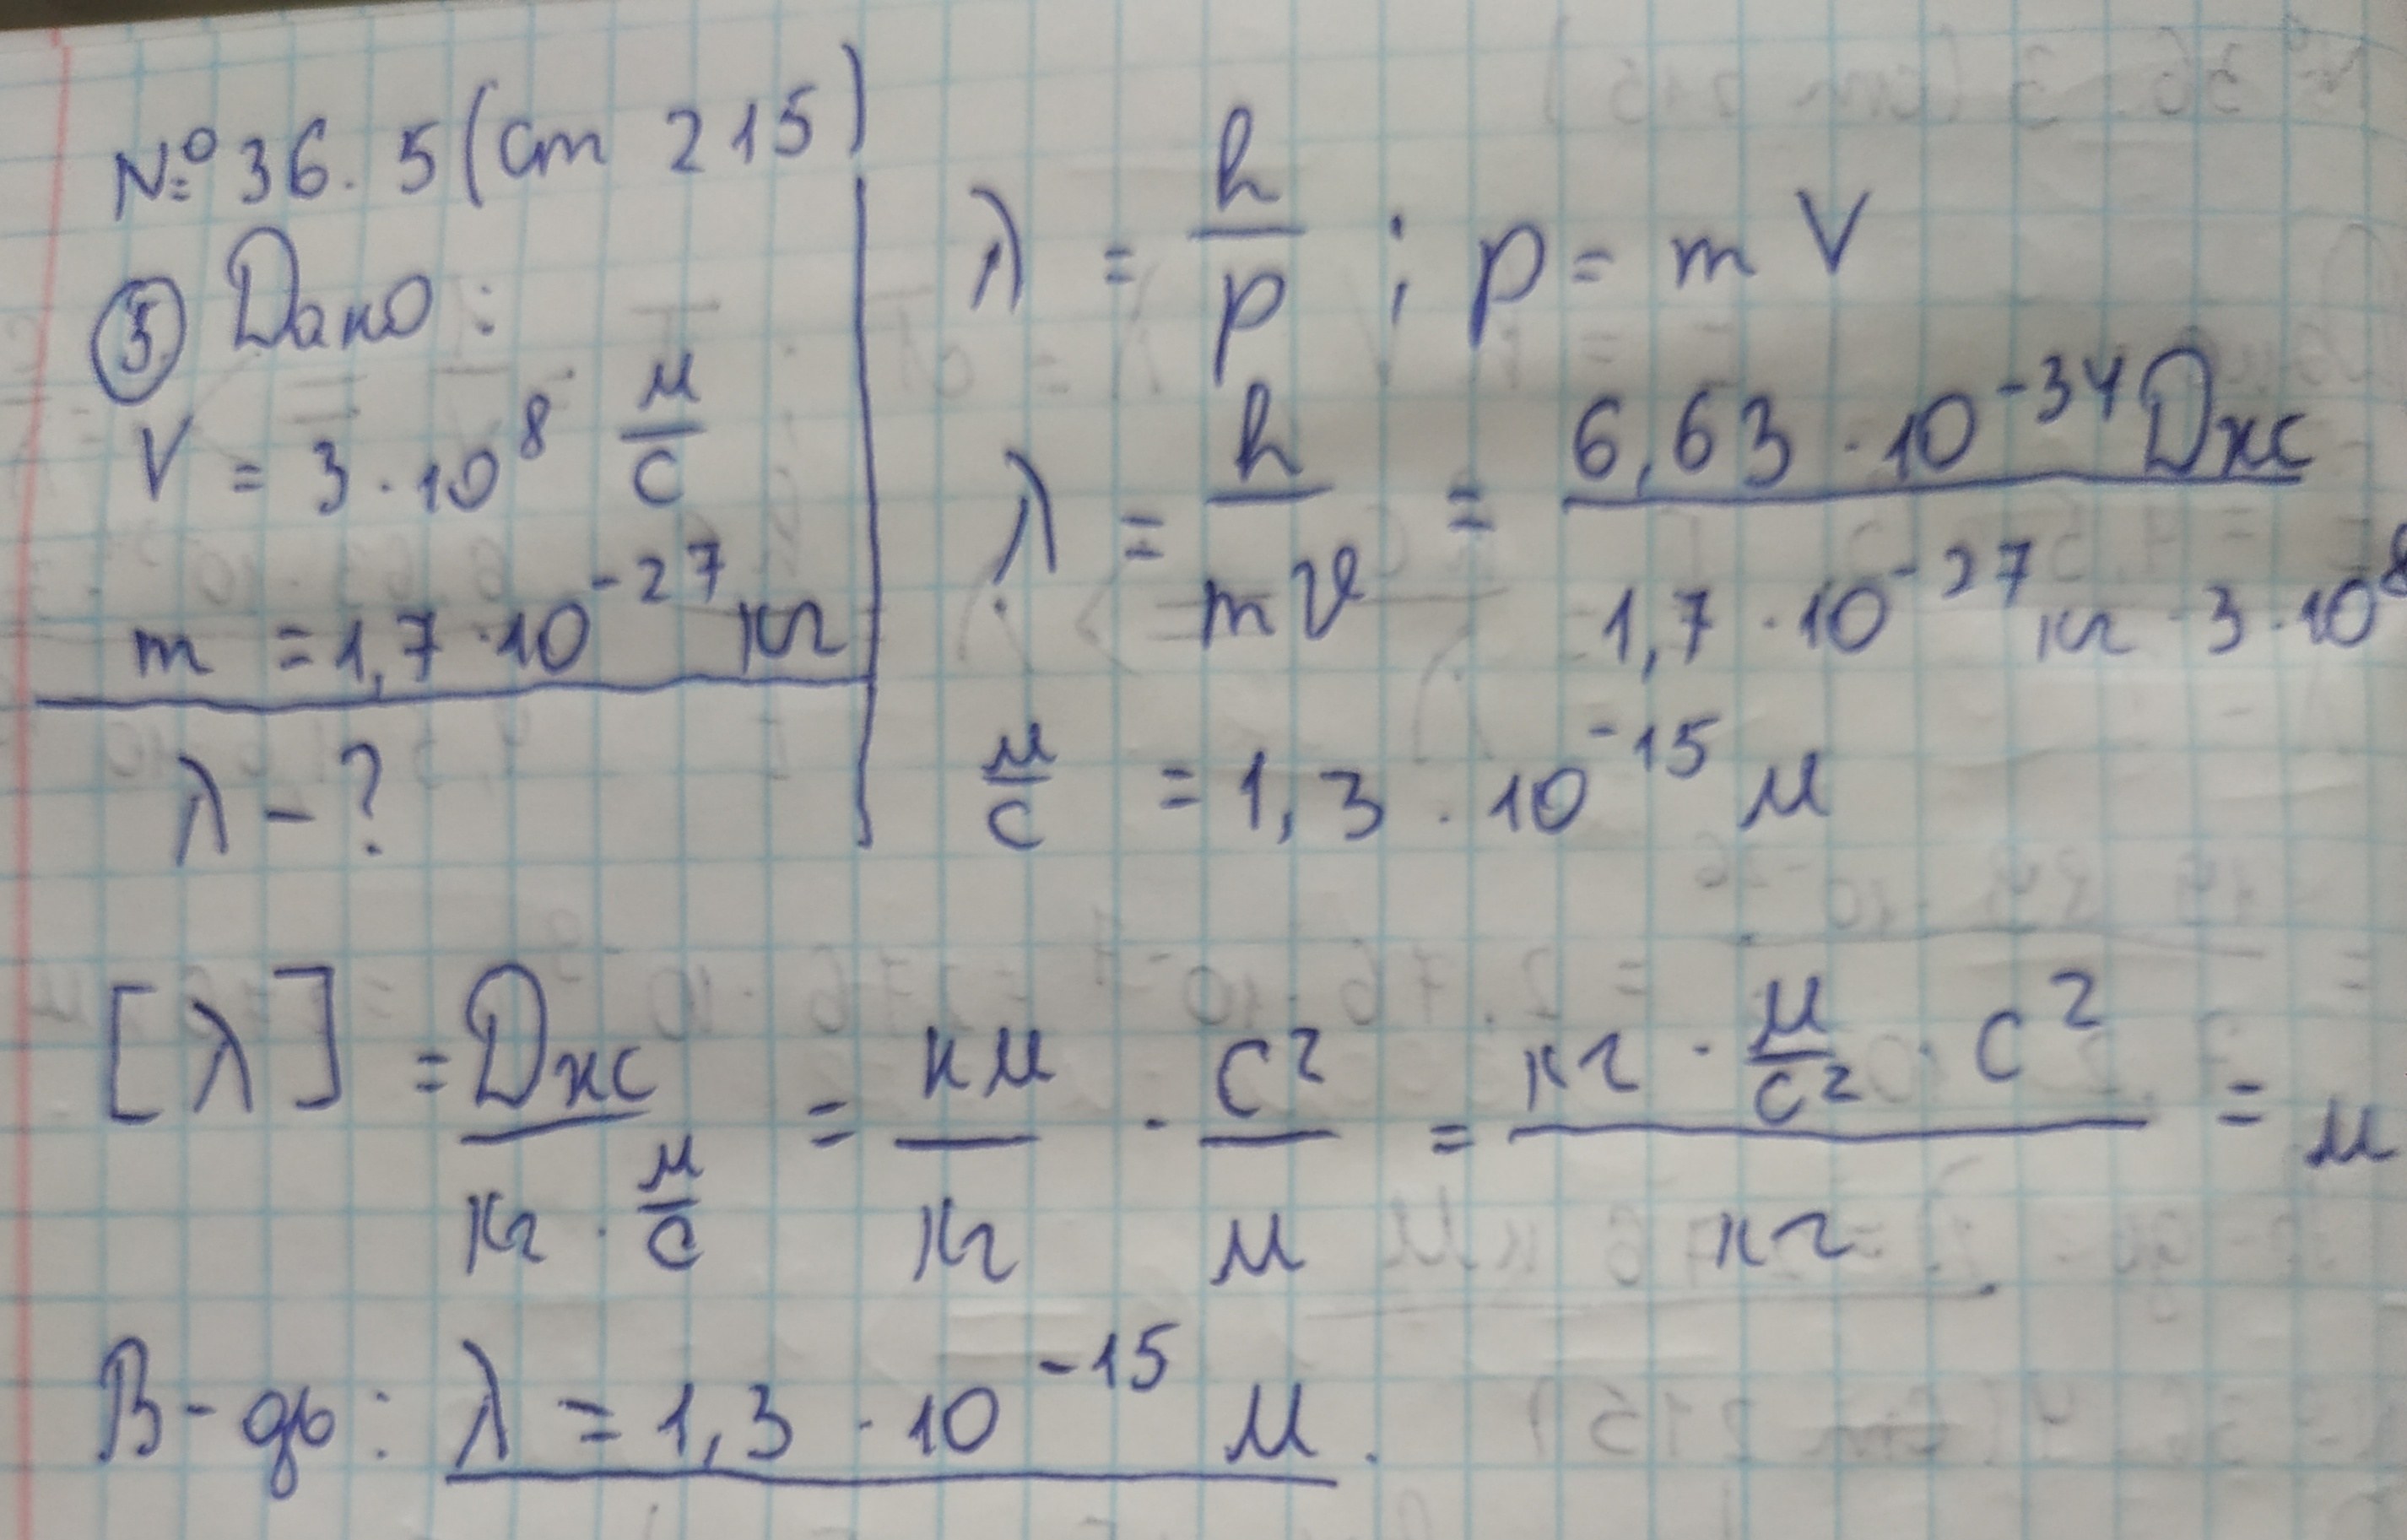 № 36. 5 (ст 215)
⑤ Дано:
V = 3 · 10⁸ м/с
m = 1,7 · 10⁻²⁷ кг
λ – ?
λ = h/p ; p = m V
λ = h/mv = 6,63 · 10⁻³⁴ Джс / 1,7 · 10⁻²⁷ кг · 3 · 10⁸
м/с = 1,3 · 10⁻¹⁵ м
[λ] = Джс / кг · м/с = нм/кг · с²/м = кг · м/с² · с² / кг = м
В-дь: λ = 1,3 · 10⁻¹⁵ м.